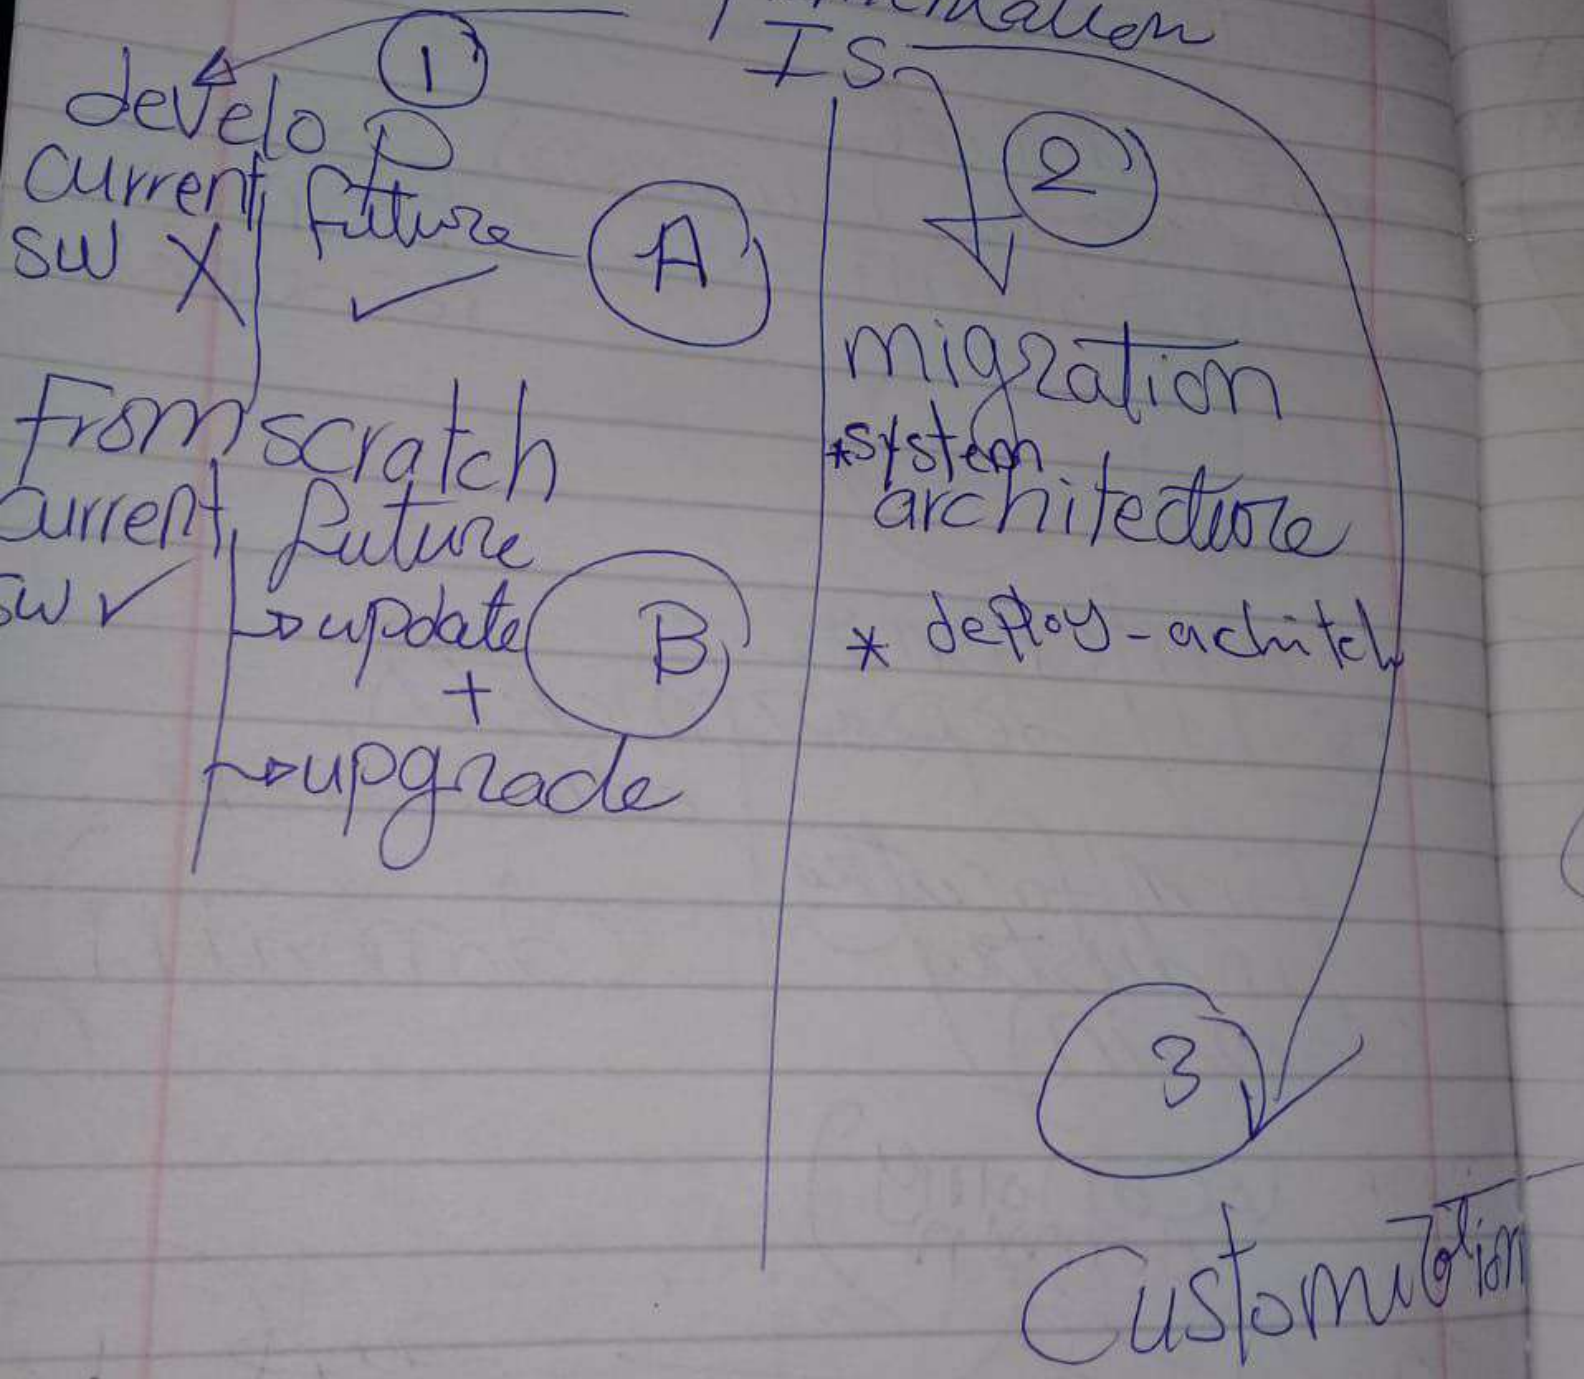 IS
1
develop
current future
SW X ✓
A
From scratch
current future
SW ✓ → update
+
→ upgrade
B
2
migration
*system
architecture
* deploy-achitch
3
Customization